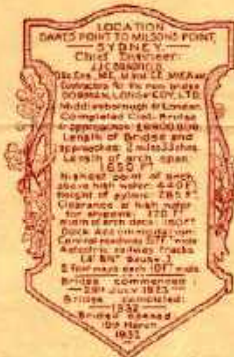 LOCATION
DAWES POINT TO MILSONS POINT,
SYDNEY.
Chief Engineer:
J.J.C. BRADFIELD,
DSc. Eng., ME, M. Inst. C.E., M.I.E. Aust.
Contractors for the main bridge
DORMAN, LONG & COY, LTD,
Middlesborough & London.
Completed Cost-Bridge
& approaches:
Length of Bridge and
approaches: 2 miles 33 chns.
Length of arch span
1650 FT
Highest point of arch
above high water: 440 FT
Height of pylons: 285 FT
Clearance at high water
for shipping: 170 FT
Width of arch deck: 160 FT
Deck Accommodation:
Central roadway 57 FT wide
4 electric railway tracks
(4' 8½" gauge)
2 footways each 10 FT wide
Bridge commenced
28th JULY 1923
Bridge completed:
1932
Bridge opened
19th March
1932